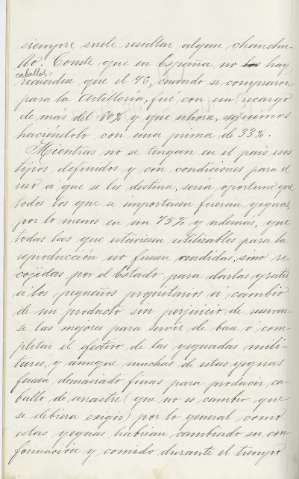 siempre suele resultar algun chanchu-
llo. Conste que en España no hay
caballos
recuerdan que el 96, cuando se compraron
para la Artillería, fué con un recargo
de más del 40% y que ahora, seguimos
haciéndolo con una prima de 33%.
Mientras no se tengan en el país sus
tipos definidos y con condiciones para el
uso a que se les destina, sería oportuno que
todos los que se importasen fueran yeguas,
por lo menos en un 75% y además, que
todas las que estuviesen utilizables para la
reproducción no fuesen vendidas, sino re-
cojidas por el Estado para darlas gratis
a los pequeños propietarios a cambio
de un producto sin perjuicio de reservar-
se las mejores para servir de base o com-
pletar el efectivo de las yeguadas mili-
tares, y aunque muchas de estas yeguas
fueran demasiado finas para producir ca-
ballo de arrastre, que no es cambio que
se debiera exigir, por lo general, como
estas yeguas habrian cambiado su con-
formación y comido durante el tiempo